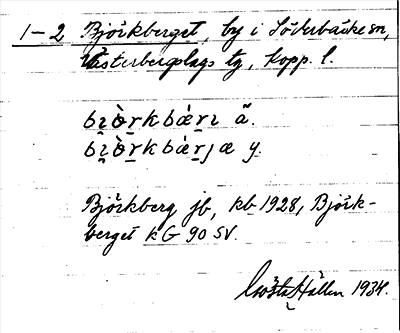 1–2 Björkberget, by i Söderbärke sn,
Västerbergslags tg, Kopp. l.
bi̯òrkbæ̀rı ä.
bi̯òrkbæ̀rjæ y.
Björkberg jb, kb 1928, Björk-
berget kG 90 SV.
Gösta Hallen 1934.